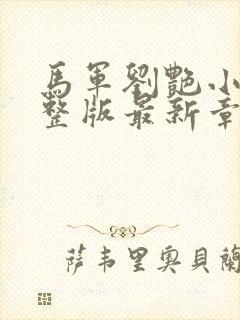 馬軍劉艷小
整版最新章
萨韦里奥貝蘭